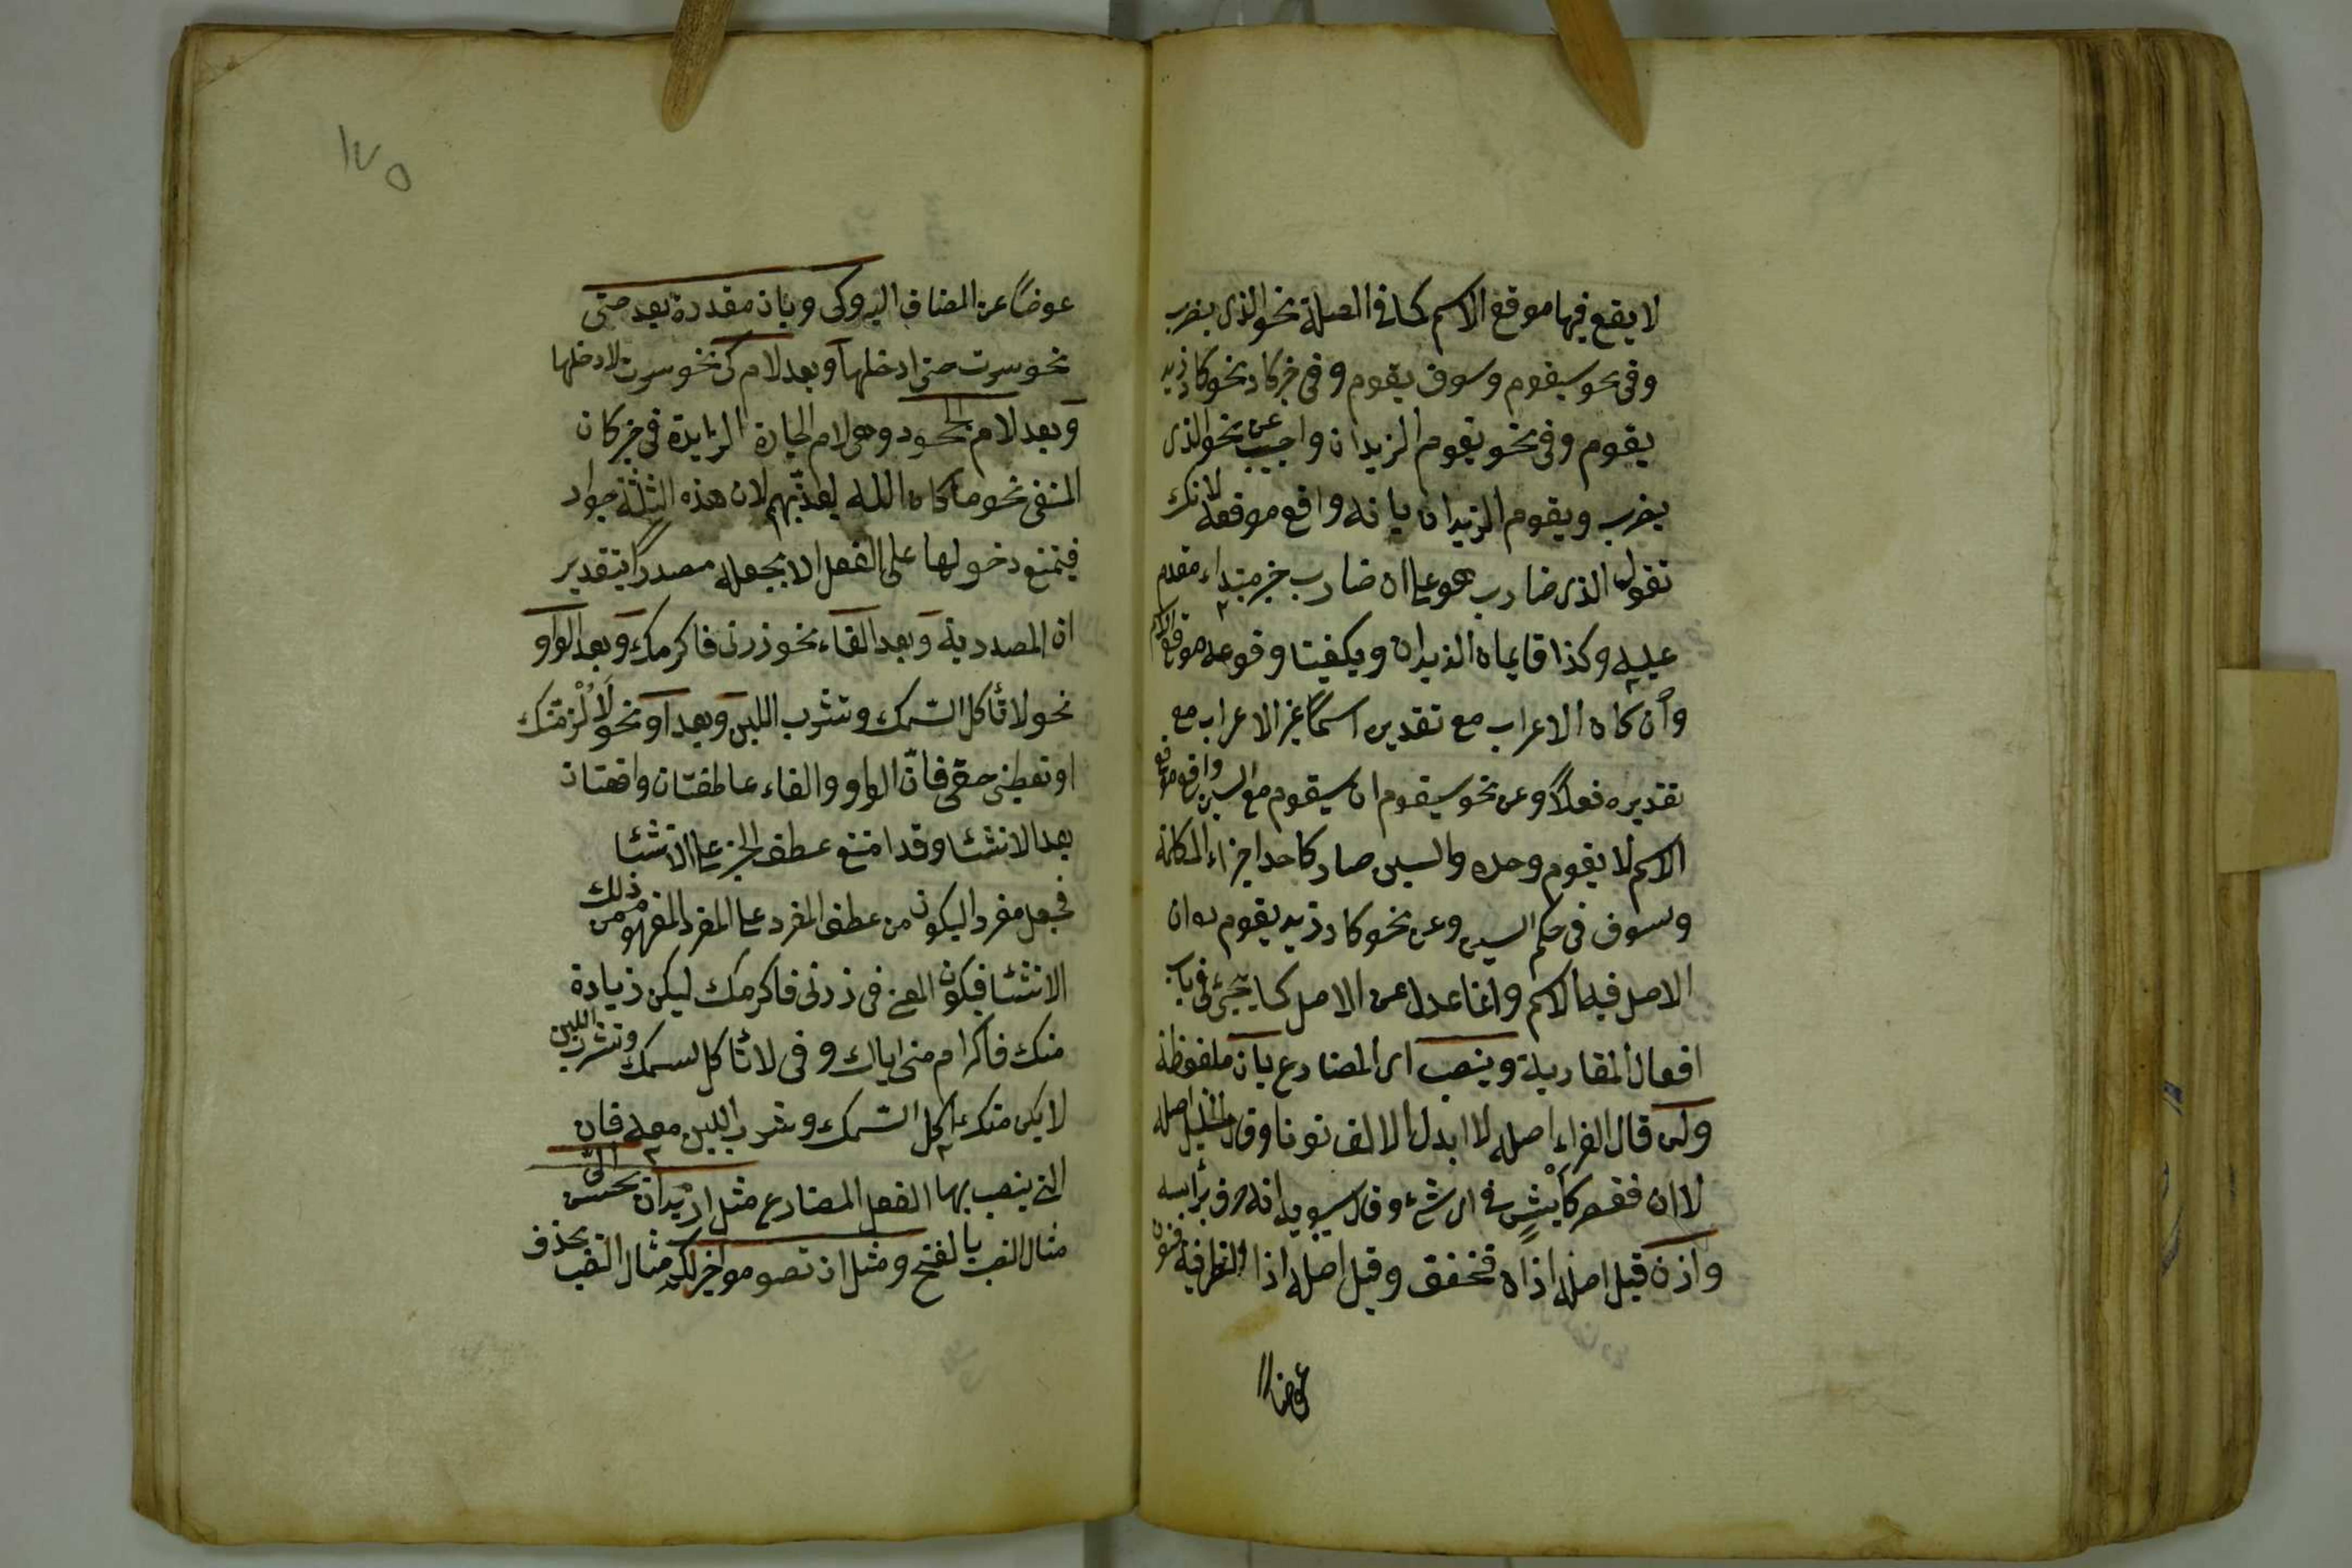 لا يقع فيها موقع الاسم كما فى الصلة نحو الذى يضرب
وفى نحو سيقوم وسوف يقوم وفى خبر كاد نحو كاد زيد
يقوم وفى نحو يقوم الزيدان واجيب عن نحو الذى
يضرب ويقوم الزيدان بانه واقع موقعه لانك
تقول الذى ضارب هو على ان ضارب خبر مبتداء مقدم
عليه وكذا قايمان الزيدان ويكفينا وقوعه موقع الاسم
وان كان الاعراب مع تقديره اسماً غير الاعراب مع
تقديره فعلاً وعن نحو سيقوم ان سيقوم مع السين واقع موقع
الاسم لا يقوم وحده والسين صار كاحد اجزاء الكلمة
وسوف فى حكم السين وعن نحو كاد زيد يقوم بان
الاصل فيه الاسم وانما عدل عن الاصل كما يجئ فى باب
افعال المقاربة وينصب اى المضارع بان ملفوظة
ولن قال الفراء اصله لا ابدل الالف نونا وقال الخليل اصله
لا ان فقصر كأيشٍ فى اى شئ وقال سيبويه انه حرف برأسه
واذن قيل اصله اذ ان فخفف وقيل اصله اذا الظرفية فنون
عوضا
١٧٥
عوضاً عن المضاف اليه وكى وبان مقدرة بعد حتى
نحو سرت حتى ادخلها وبعد لام كى نحو سرت لادخلها
وبعد لام الجحود وهى لام الجارة الزايدة فى خبر كان
المنفى نحو ما كان الله ليعذبهم لان هذه الثلثة جوار
فيمتنع دخولها على الفعل الا بجعله مصدراً بتقدير
ان المصدرية وبعد الفاء نحو زرنى فاكرمك وبعد الواو
نحو لا تأكل السّمك وتشرب اللبن وبعد او نحو لَاُلْزمنّك
او تعطينى حقى فانّ الواو والفاء عاطفتان واقعتان
بعد الانشا وقد امتنع عطف الخبر على الانشا
فجعل مفردا ليكون من عطف المفرد على المفرد المفهوم من ذلك
الانشا فيكون المعنى فى زرنى فاكرمك ليكن زيادة
منك فاكرام منى اياك وفى لا تأكل السمك وتشرب اللبن
لا يكن منك اكل السّمك وشرب اللبن معه فان
التى ينصب بها الفعل المضارع مثل اريد ان تحسن الىّ
مثال النصب بالفتح ومثل ان تصوموا خير لكم مثال النصب بحذف